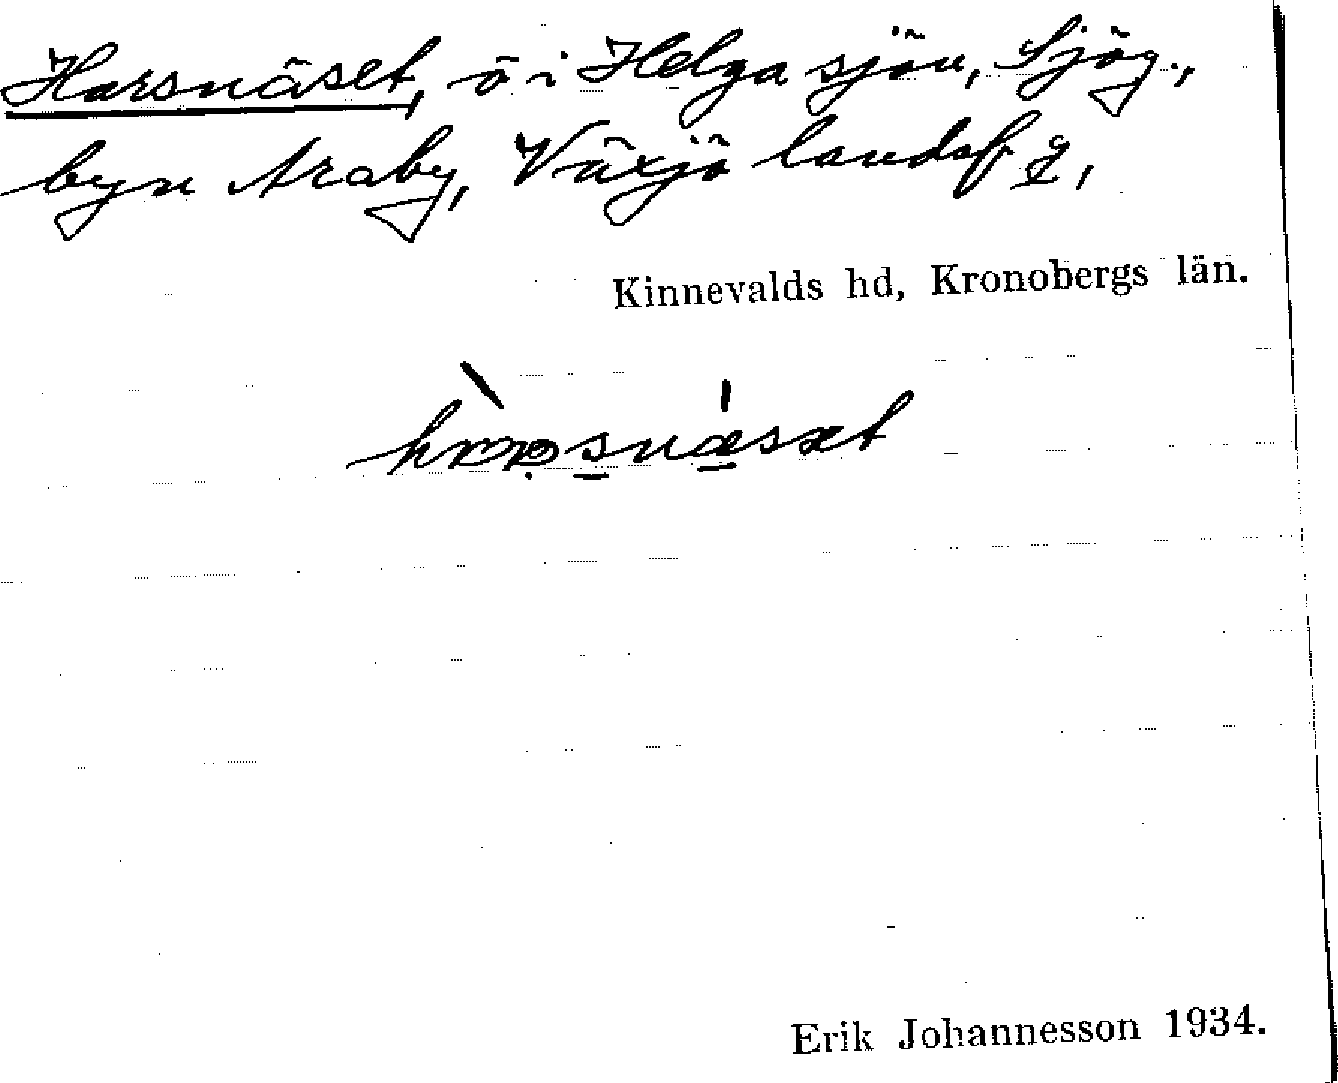 Harsnäset, ö i Helgasjön, Sjög.,
byn Araby, Växjö landsf
Kinnevalds hd, Kronobergs län.
Erik Johannesson 1934.